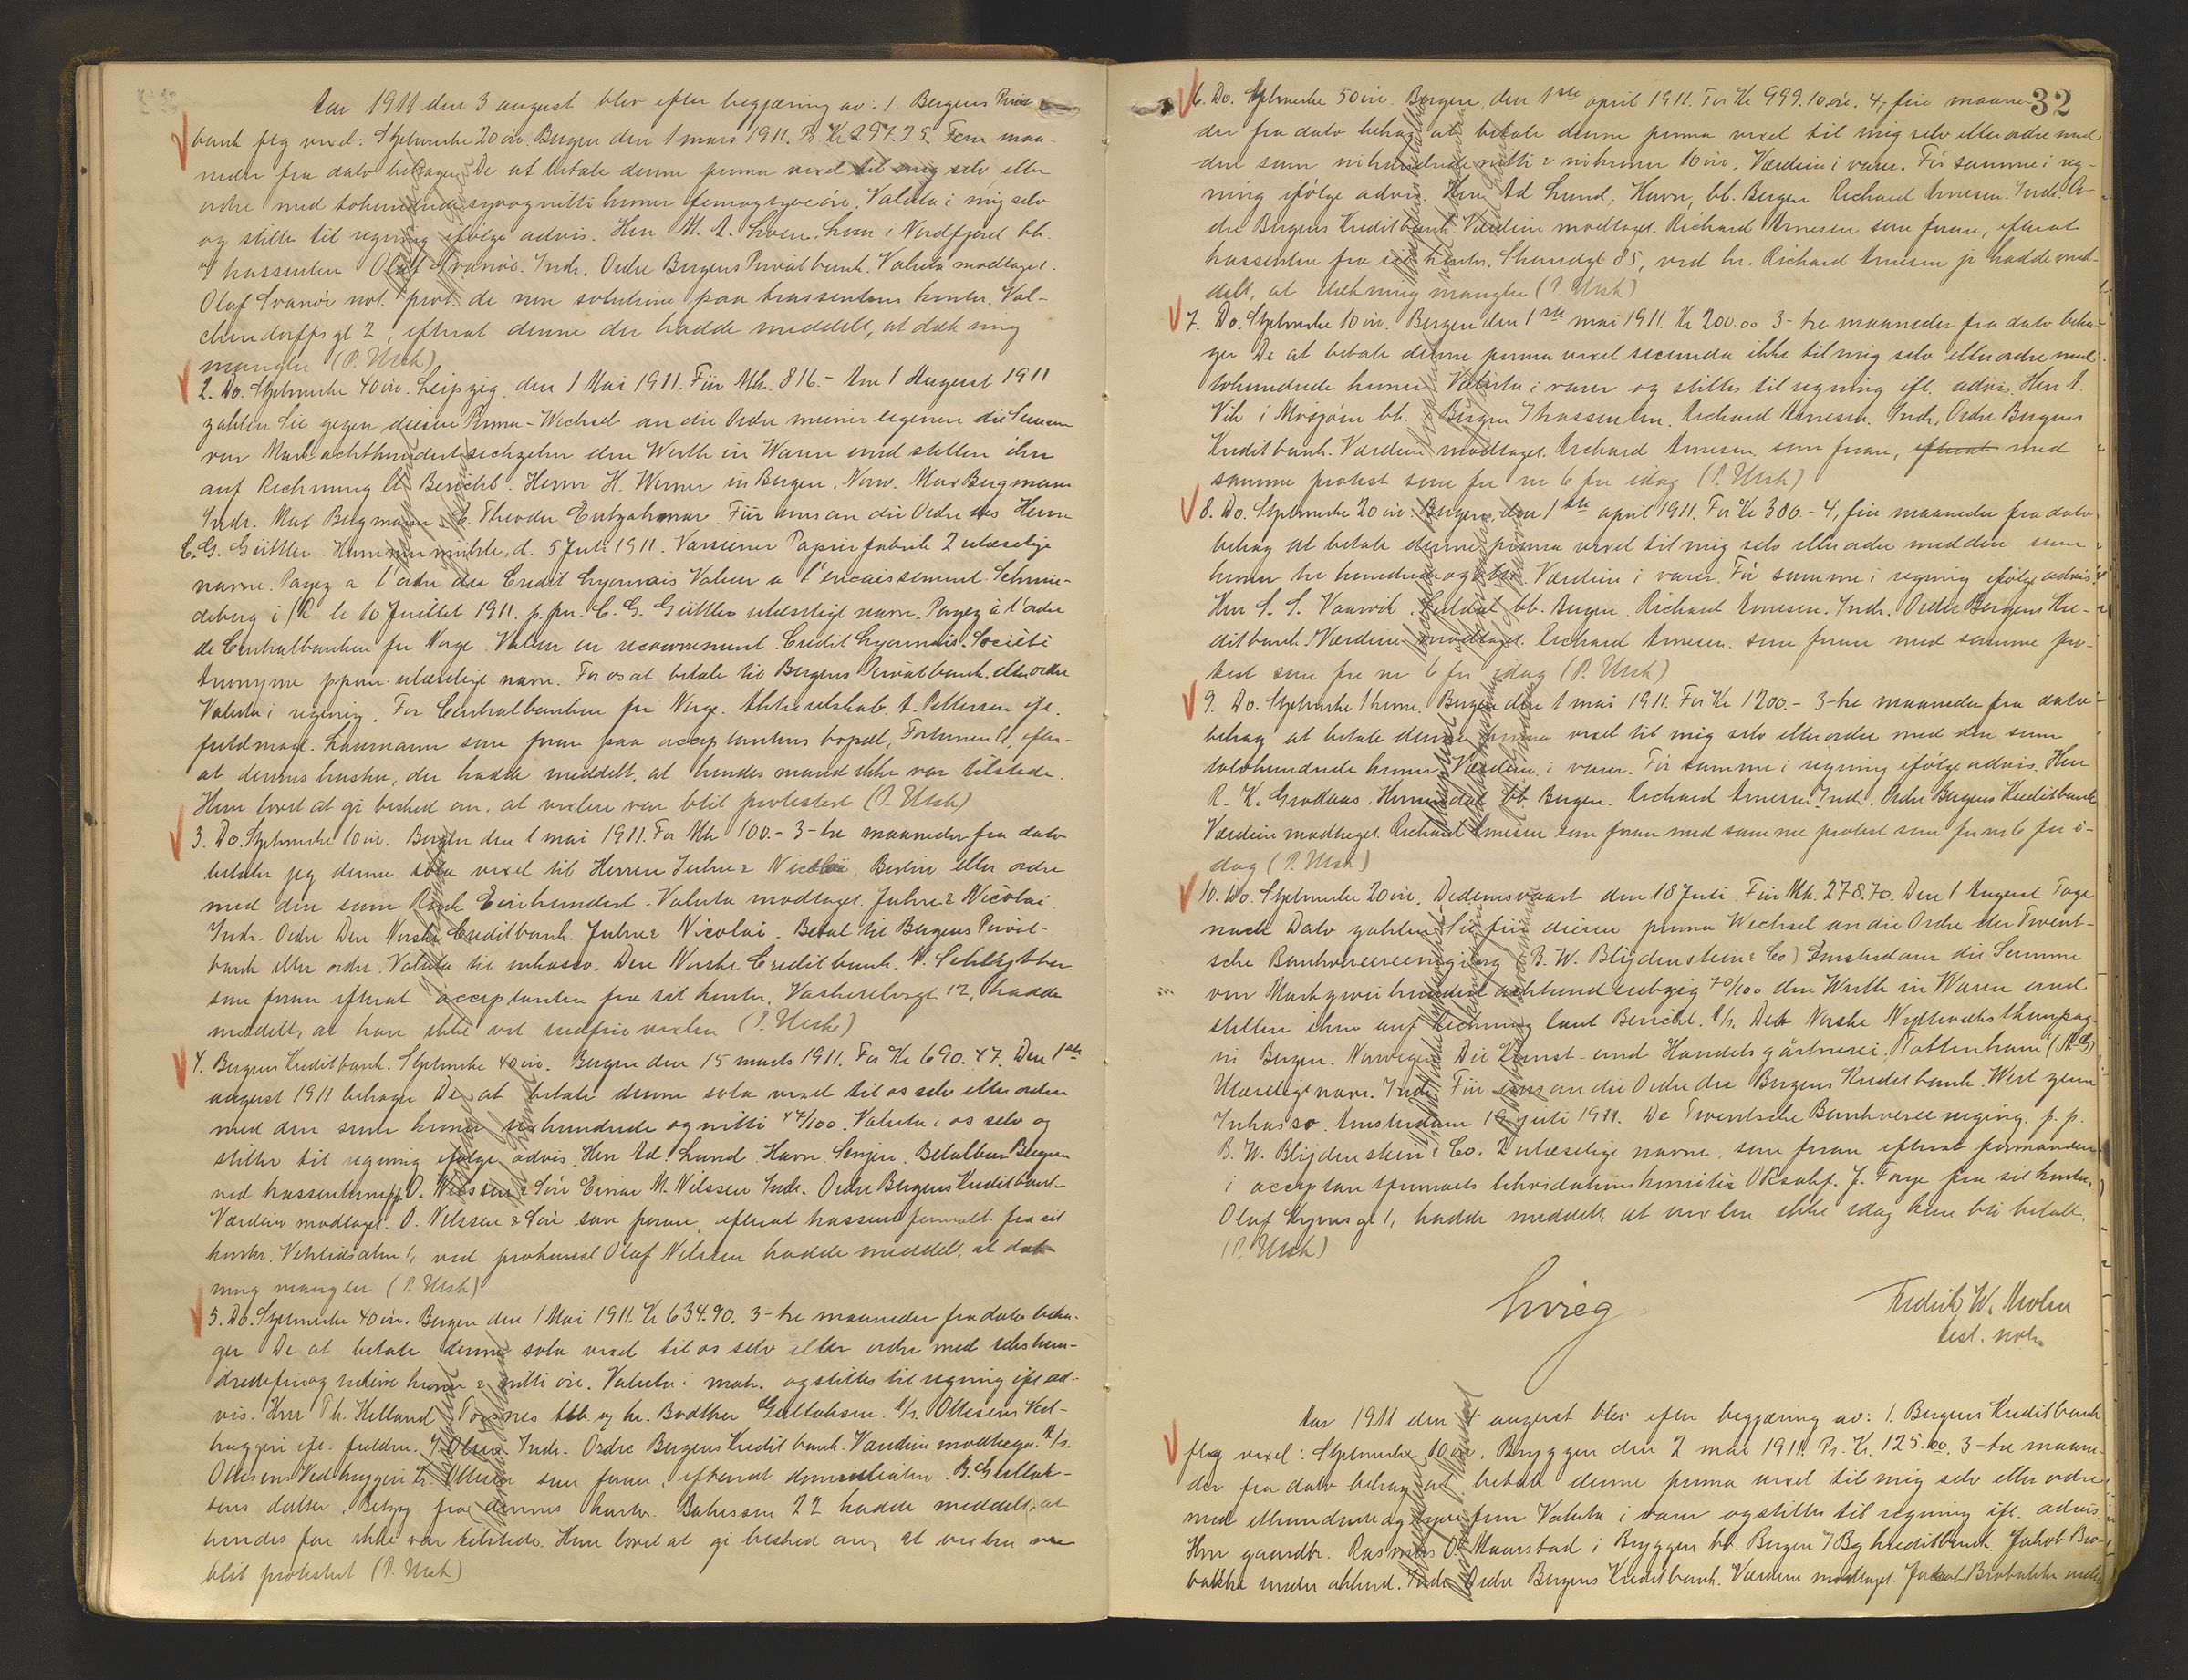 Aar 1911 den 3 august blev efter begjæring av: 1. Bergens Privat
bank flg vexel: Stplmerke 20 øre. Bergen den 1 mars 1911. Pr Kr 297.25. Fem maa-
neder fra dato behager De at betale denne prima vexel til mig selv eller
ordre med tohundrede syvognitti kroner femogtyve øre. Valuta i mig selv
og stilles til regning ifølge advis. Herr M. A. Loen, Loen i Nordfjord bb.
trassenten Olaf Svanøe. Indr. Ordre Bergens Privatbank. Valuta modtaget.
Olaf Svanøe not. prot. de non solutione paa trassentens kontor. Val-
chendorffs gt 2, efterat denne der hadde meddelt, at dækning
mangler (P. Utsk)
2. Do. Stplmerke 40 øre. Leipzig, den 1 Mai 1911. Für Mk. 816.- Am 1 August 1911
zahlen Sie gegen diesen Prima-Wechsel an die Ordre meiner eigenen die Summe
von Mark achthundertsechzehn den Werth in Waren und stellen ihn
auf Rechnung lt Bericht. Herrn H. Werner in Bergen, Norw. Max Bergmann
Indr. Max Bergmann. C. Theodor Für uns an die Ordre des Herrn
C. G. Güttler. Hammermühle, d. 5 Juli 1911. Varziner Papierfabrik 2 ulæselige
navne. Payez a l'ordre du Credit Lyonnais Valeur a l'encaissement. Schmie-
deberg i/R le 10 Juillet 1911. p.pr. C. G. Güttler ulæseligt navn. Payez à l'ordre
de Centralbanken for Norge. Valeur en recouvrement. Credit Lyonnais. Société
Anonyme ppon. ulæselige navn. For os at betale til Bergens Privatbank eller ordre
Valuta i regning. For Centralbanken for Norge. Aktieselskab. A. Pettersen ifl.
fuldmagt. Laumann som foran paa acceptantens bopæl, Fortunen 6, efter-
at dennes hustru, der hadde meddelt, at hendes mand ikke var tilstede.
Hun lovet at gi besked om, at vexlen var blit protestert (P. Utsk)
3. Do. Stplmerke 10 øre. Bergen den 1 mai 1911. For Mk 100.- 3-tre maaneder fra dato
betaler jeg denne sola vexel til Herren Juhre & Nicolai, Berlin eller ordre
med den sum Rmk Einhundert. Valuta modtaget. Juhre & Nicolai.
Indr. Ordre Den Norske Creditbank. Juhre & Nicolai. Betal til Bergens Privat-
bank eller ordre. Valuta til inkasso. Den Norske Creditbank. N. Schlytter
som foran efterat acceptanten fra sit kontor, Vaskerelvsgt 12, hadde
meddelt, at han ikke vil indfri vexlen (P. Utsk)
4. Bergens Kreditbank. Stplmerke 40 øre. Bergen den 15 marts 1911. For Kr 690.47. Den 1ste
august 1911 behager De at betale denne sola vexel til os selv eller ordre
med den sum kroner sexhundrede og nitti 47/100. Valuta i os selv og
stilles til regning ifølge advis. Herr Ad. Lund. Havn. Senjen. Betalbar Bergen
ved trassenterne pp O. Nilssen & Søn Einar M. Nilssen Indr. Ordre Bergens Kreditbank
Værdien modtaget. O. Nilssen & Søn som foran, efterat trassentfirmaet fra sit
kontor. Vetrlidsalm 1, ved prokurist Olaf Nilssen hadde meddelt, at dæk-
ning mangler (P. Utsk)
5. Do. Stplmerke 40 øre. Bergen den 1 Mai 1911. Kr 634.90. 3-tre maaneder fra dato beha-
ger De at betale denne sola vexel til os selv eller ordre med sekshun-
dredefireogtredive kroner & nitti øre. Valuta i mot. og stilles til regning ifl ad-
vis. Herr Th. Helland Torsnes bb. og hr. Brødtker Gullaksen. A/s. Ottesens Ved-
huggeri ifl. fuldm. J Olsen Indr. Ordre Bergens Kreditbank. Værdien modtaget. A/s.
Ottesens Vedhuggeri Ottesen som foran, efterat domiciliaten B. Gullak-
sens datter, Betsy fra dennes kontor. Bakersm 22 hadde meddelt, at
hendes far ikke var tilstede. Hun lovet at gi besked om, at vexlen var
blit protestert (P. Utsk)
32
6. Do. Stplmerke 50 øre. Bergen, den 1ste april 1911. For Kr 999.10 øre. 4, fire maane-
der fra dato behag at betale denne prima vexel til mig selv eller ordre med
den sum nihundrede nitti & nikroner 10 øre. Værdien i varer. Før samme i reg-
ning ifølge advis. Herr Ad Lund. Havn, bb. Bergen Richard Arnesen. Indr. Or-
dre Bergens Kreditbank. Værdien modtaget. Richard Arnesen som foran, efterat
trassenten fra sit kontor. Strandgt 85, ved hr. Richard Arnesen jr hadde med-
delt, at dækning mangler (P. Utsk)
7. Do. Stplmerke 10 øre. Bergen den 1ste mai 1911. Kr 200.00 3-tre maaneder fra dato beha-
ger De at betale denne prima vexel secunda ikke til mig selv eller ordre med
tohundrede kroner Valuta i varer og stilles til regning ifl. advis. Herr A.
Vik i Mosjøen bb. Bergen Trassenten. Richard Arnesen. Indr. Ordre Bergens
Kreditbank. Værdien modtaget. Richard Arnesen som foran, efterat med
samme protest som for nr 6 for idag (P. Utsk)
8. Do. Stplmerke 20 øre. Bergen, den 1ste april 1911. For Kr 380.- 4, fire maaneder fra dato
behag at betale denne prima vexel til mig selv eller ordre med den sum
kroner tre hundrede og otti. Værdien i varer. Før samme i regning ifølge advis.
Herr S. S. Vaarvik. bb. Bergen. Richard Arnesen. Indr. Ordre Bergens Kre-
ditbank. Værdien modtaget. Richard Arnesen. som foran med samme pro-
test som for nr 6 for idag (P. Utsk)
9. Do. Stplmerke 1 krone. Bergen den 1 mai 1911. For Kr 1200.- 3-tre maaneder fra dato
behag at betale denne prima vexel til mig selv eller ordre med den sum
tolvhundrede kroner Værdien i varer. Før samme i regning ifølge advis. Herr
R. K. Grodaas. Hornindal bb. Bergen. Richard Arnesen Indr. Ordre Bergens Kreditbank
Værdien modtaget. Richard Arnesen som foran med samme protest som for nr 6 for i-
dag (P. Utsk)
10. Do. Stplmerke 20 øre. Dedemsvaart den 18 Juli. Für Mk. 278.70. Den 1 August Tage
nach Dato zahlen Sie für diesen prima Wechsel an die Ordre der Twent-
sche Bankvereeniging (B. W. Blijdenstein & Co) Amsterdam die Summe
von Mark zwei hundert achtundsiebzig 70/100 den Werth in Waren und
stellen ihn auf Rechnung laut Bericht. A/s. Det Norske Nyttevækstkompag-
ni Bergen. Norwegen Die Kunst- und Handelsgärtnerei. Tottenham (A.G)
Ulæseligt navn. Indr. Für uns an die Ordre der Bergens Kreditbank. Wert zum
Inkasso. Amsterdam 19 juli 1911. De Twentsche Bankvereeniging. p. p.
B. W. Blijdenstein & Co. 2 ulæselige navne, som foran efterat formanden
i acceptantfirmaets likvidationskomite ORsakf. J. Forge fra sit kontor,
Olaf Kyrres gt 1, hadde meddelt, at vexlen ikke idag kan bli betalt.
(P. Utsk)
Lvieg
Fredrik W. Mohn
test. not.
Aar 1911 den 4 august blev efter begjæring av: 1. Bergens Kreditbank
flg vexel: Stplmerke 10 øre. Bryggen den 2 mai 1911. Pr. Kr. 125.00. 3-tre maane-
der fra dato behag at betale denne prima vexel til mig selv eller ordre
med ethundrede og tyve fem Valuta i varer og stilles til regning ifl. advis
Herr gaardbr. Rasmus O. Maurstad i Bryggen bb. Bergen I Bg kreditbank. Jakob Bro-
bakke under akkord. Indr. Ordre Bergens Kreditbank. Værdien modtaget. Jakob Brobakke under